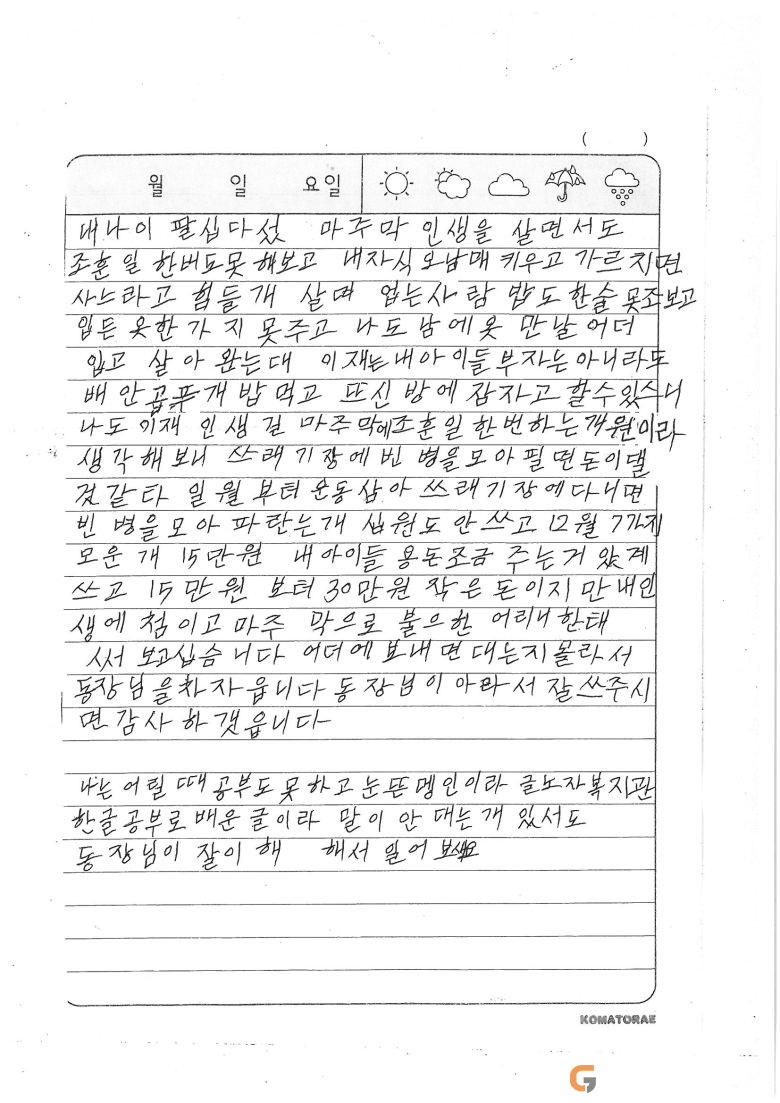 ( )
월 일 요일
내나이 팔십다섯 마주막 인생을 살면서도
조훈일 한버도못 해보고 내자식 오남매 키우고 가르치면
사느라고 힘들개 살며 업는사람 밥도 한술 못조보고
입든 옷한가지 못주고 나도 남에옷 만날 어더
입고 살아 완는대 이재는내아이들 부자는아니라도
배안곱푸개 밥먹고 뜨신 방에 잠자고 할수있스니
나도 이재 인생길 마주막에조훈일 한번하는개 원이라
생각해보니 쓰래기장에 빈 병을모아 필면돈이댈
것같타 일월 부터 운동삼아 쓰래기장에다니면
빈 병을모아 파란는개 십원도 안쓰고 12월 7가지
모운개 15만원 내아이들 용돈조금 주는거 았계
쓰고 15만원 보터 30만원 작은돈이지만 내인
생에 첨이고 마주 막으로 불으한 어리니한태
써 보고십슴니다 어더에 보내면대는지몰라서
동장님을차자읍니다 동장님이 아라서 잘쓰주시
면감사하갯읍니다
나는 어릴 때 공부도못하고 눈뜬멩인이라 글노자복지관
한글공부로배운글이라 말이 안대는개 있서도
동장님이 잘이해 해서 일어 보새요
KOMATORAE